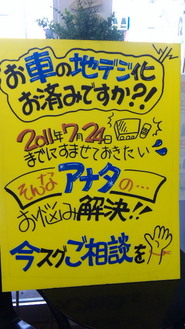 お車の地デジ化
お済みですか?!
2011年7月24日
までにすませておきたい
そんなアナタの…
お悩み解決!!
今スグご相談を